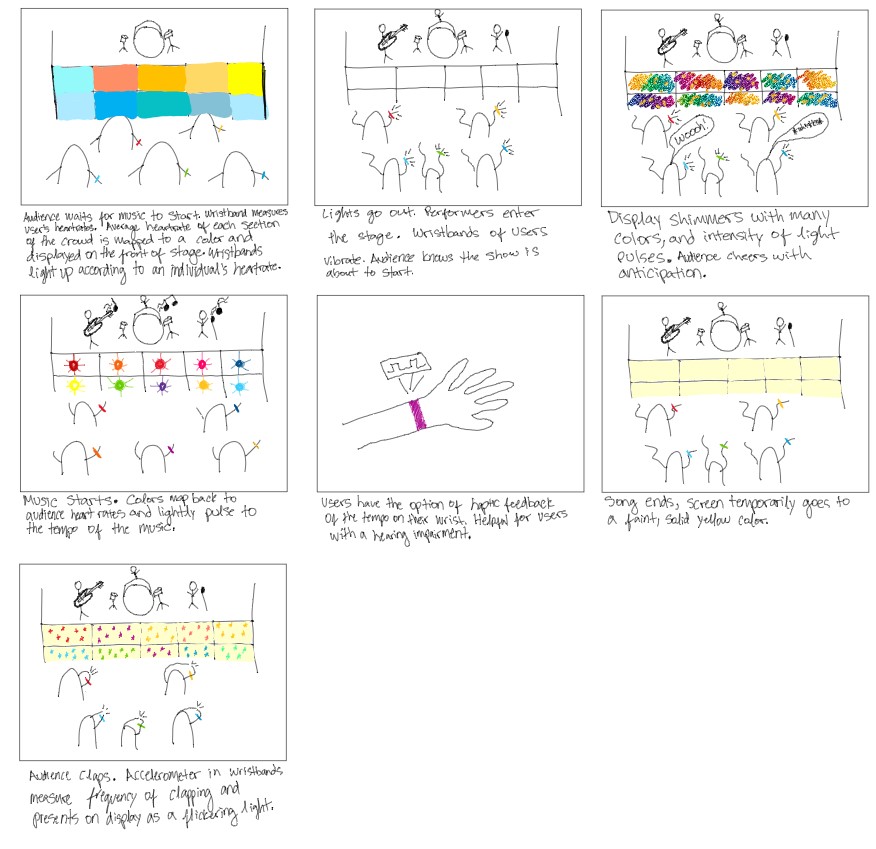 Audience waits for music to start. Wristband measures
user's heartrates. Average heartrate of each section
of the crowd is mapped to a color and
displayed on the front of stage. Wristbands
light up according to an individual's heartrate.
Lights go out. Performers enter
the stage. Wristbands of users
vibrate. Audience knows the show is
about to start.
Woooh!
Display shimmers with many
colors, and intensity of light
pulses. Audience cheers with
anticipation.
Music starts. Colors map back to
audience heart rates and lightly pulse to
the tempo of the music.
Users have the option of haptic feedback
of the tempo on their wrist. Helpful for users
with a hearing impairment.
Song ends, screen temporarily goes to
a faint, solid yellow color.
Audience claps. Accelerometer in wristbands
measure frequency of clapping and
presents on display as a flickering light.